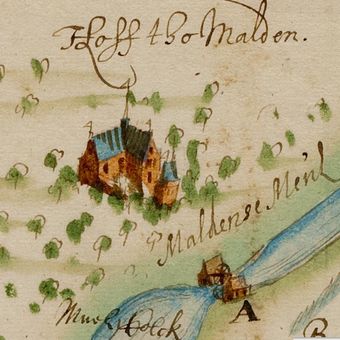 Hoff tho Malden.
Maldense Meul
Muel Kolck
A
B